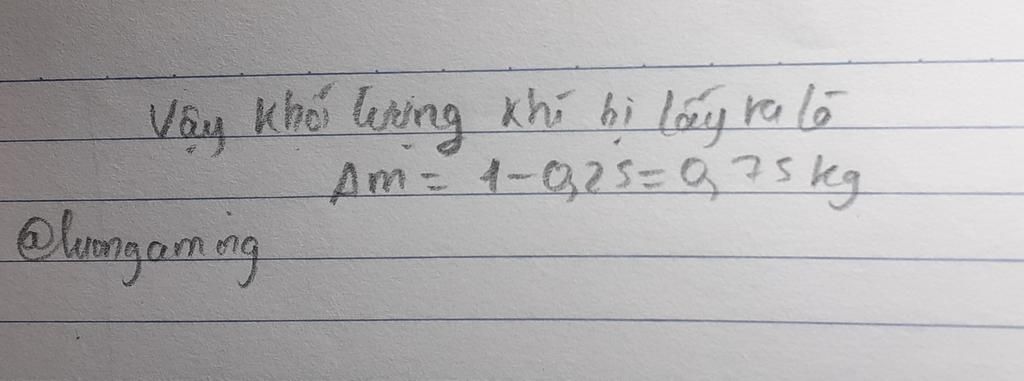 Vậy khối lượng khí bị lấy ra là
Δm = 1-0,25=0,75kg
@luongaming